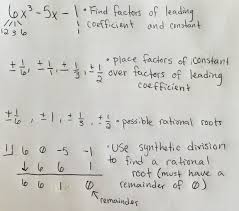 6x³ - 5x - 1 • Find factors of leading
coefficient and constant
1 2 3 6 1
± 1/6, ± 1/1, ± 1/3, ± 1/2 • place factors of constant
over factors of leading
coefficient
± 1/6, ± 1, ± 1/3, ± 1/2 • possible rational roots
1| 6 0 -5 -1 • Use synthetic division
↓ 6 6 1 to find a rational
6 6 1 0 root (must have a
remainder of 0)
remainder